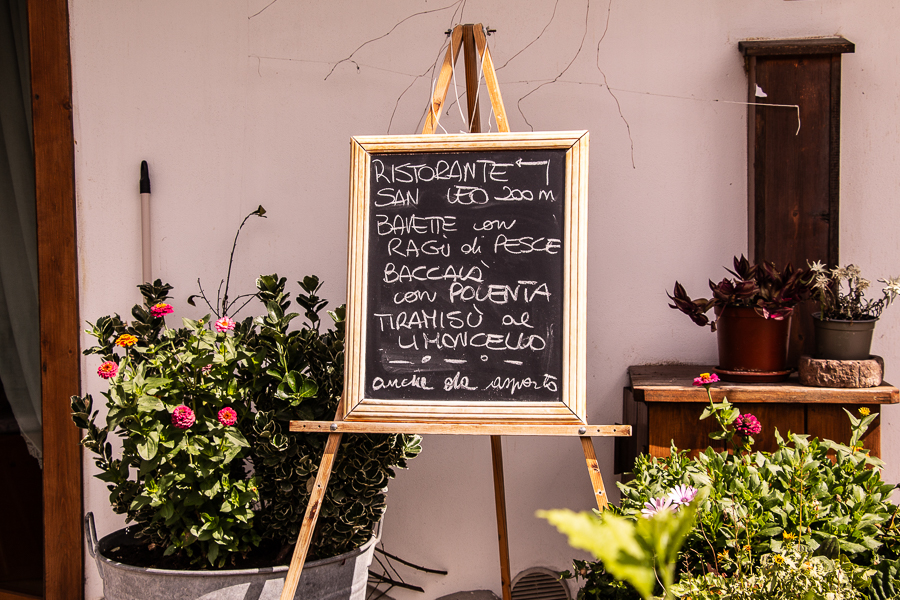 RISTORANTE ←
SAN LEO 200 m
BAVETTE con
RAGÙ di PESCE
BACCALÀ
con POLENTA
TIRAMISÙ al
LIMONCELLO
anche da asporto